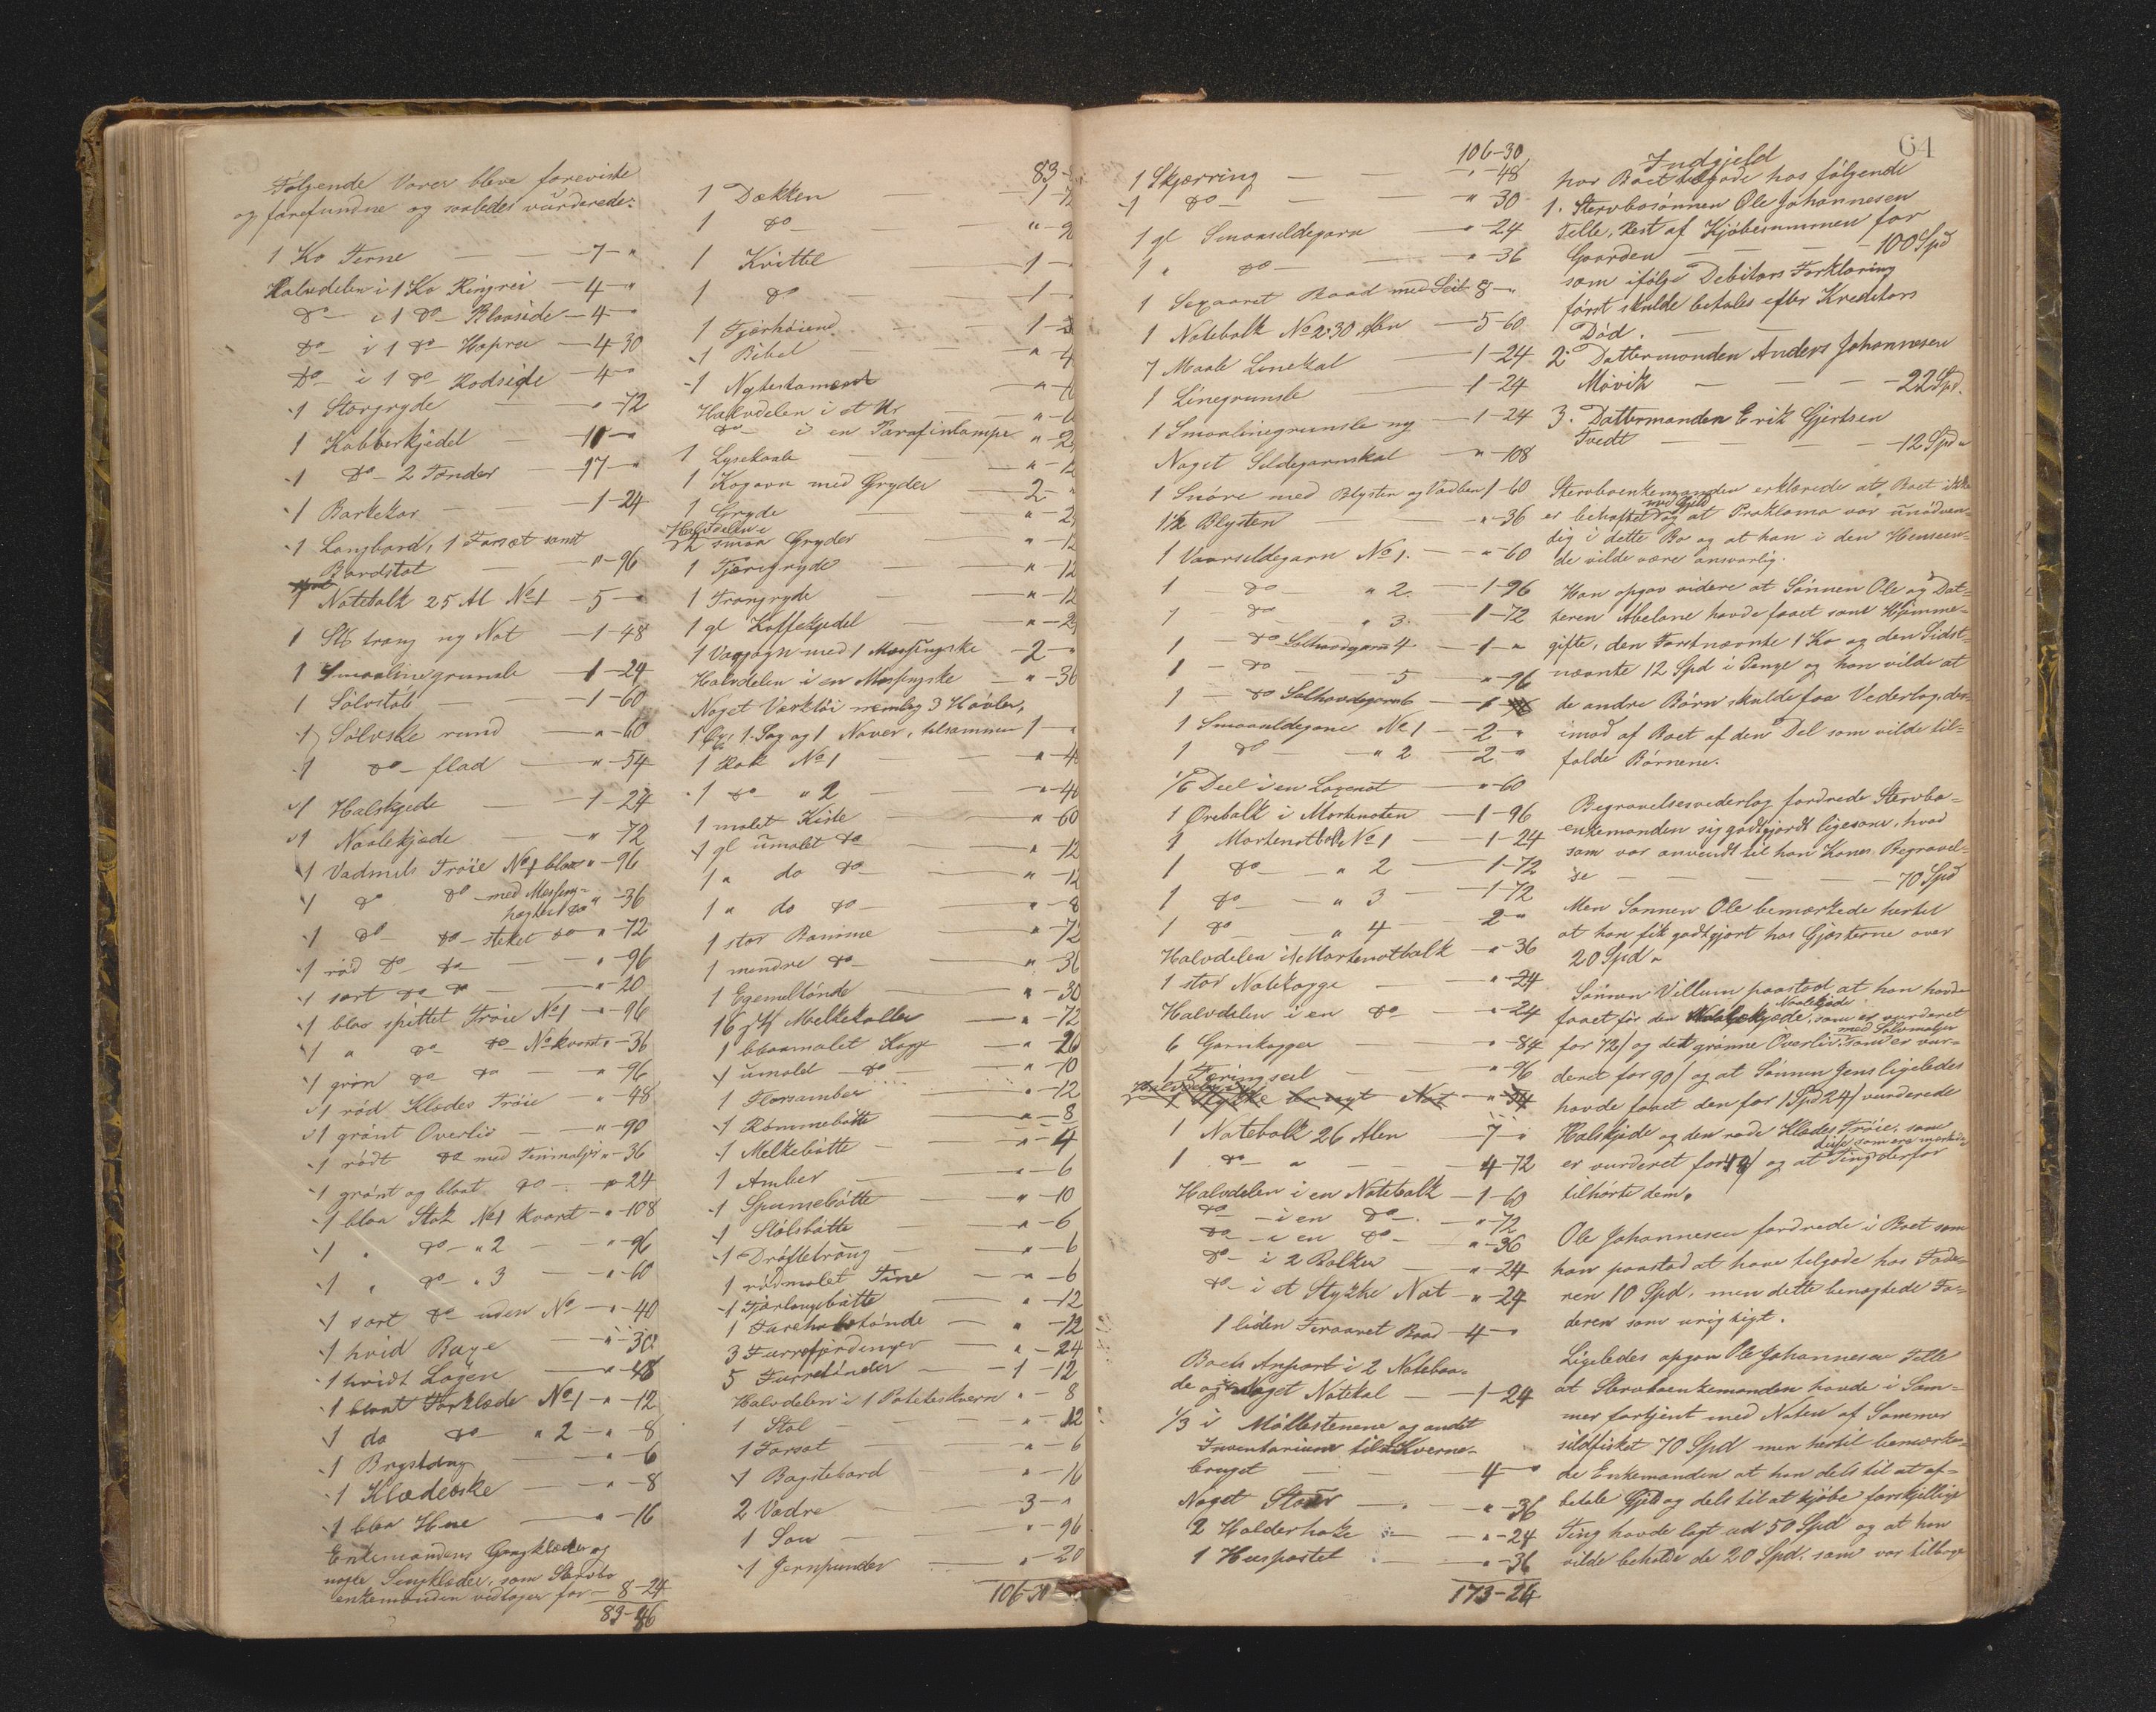 Følgende Varer bleve foreviste
og forefundne og saaledes vurderede:
1 Ko Terne — 7 - "
Halvdelen i 1 Ko Ringrei — 4 - "
do i 1 do Blaaside — 4 - "
do i 1 do Hoprei — 4 - 30
do i 1 do Rødside — 4 - "
1 Storgryde — " - 72
1 Kobberkjedel — 10 - "
1 do 2 Tønder — 17 - "
1 Barkekar — 1 - 24
1 Langbord, 1 Forsæt samt
Bordstol — " - 96
1 Notebolk 25 Al No 1 — 5 - "
1 Stk trang ny Not — 1 - 48
1 Smaalinegrunsle — 1 - 24
1 Sølvstob — 1 - 60
1 Sølvske rund — " - 60
1 do flad — " - 54
1 Halskjede — 1 - 24
1 Naalekjæde — " 72
1 Vadmels Trøie No 1 blaa " - 96
1 do do med Messing-
hægter do " - 36
1 do do steket do " - 72
1 rød do do — " - 96
1 sort do do — " - 20
1 blaa spittet Trøie No 1 — " - 96
1 " do do No kvart " - 36
1 grøn do do — " - 96
1 rød Klædes Trøie — " - 48
1 grønt Overliv — " - 90
1 rødt do med Tinmaljer " - 36
1 grønt og blaat do — " - 24
1 blaa Stak No 1 kvart — " - 108
1 " do " 2 — " - 96
1 " do " 3 — " - 60
1 sort do uden No — " - 40
1 hvid Buxe — " - 30
1 hvidt Lagen — " - 48
1 blaat Forklæde No 1 — " - 12
1 do do " 2 — " - 8
1 Brystdug — " - 6
1 Klædeæske — " - 8
1 blaa Hue — " - 16
Enkemandens Gangklæder og
nogle Sengklæder, som Stervbo
enkemanden vedtager for — 8 - 24
83 - 46
83 -
1 Dækken — 1 - 72
1 do — " - 9
1 Kvittel — 1 -
1 do — 1 -
1 Fjærhøiende — 1 -
1 Bibel — " - 4
1 Nytestament — " -
Halvdelen i et Uhr — " - 6
do i en Parafinlampe " - 2
1 Lysekaale — " - 12
1 Kogovn med Gryder — 2 - "
1 Gryde — " - 2
Halvdelen i
2 smaa Gryder — " - 12
1 Tjæregryde — " - 12
1 Trangryde — " - 12
1 gl Kaffekjedel — " - 2
1 Vogjogn med 1 Messingske — 2 - "
Halvdelen i en Messingske — " - 36
Noget Værktøi nemlig 3 Høvler,
1 Øx, 1 Sag og 1 Naver, tilsammen 1 - "
1 Rok No 1 — " - 4
1 do " 2 — " - 40
1 malet Kiste — " - 60
1 gl umalet do — " - 12
1 " do do — " - 12
1 " do do — " - 8
1 stor Bomme — " - 72
1 mindre do — " - 36
1 Egemeltønde — " - 30
16 stk Melkekoller — " - 72
1 blaamalet Kagge — " - 20
1 umalet do — " - 10
1 Florsamber — " - 12
1 Rømmebøtte — " - 8
1 Melkebøtte — " - 4
1 Amber — " - 6
1 Spunsebøtte — " - 10
1 Stølsbøtte — " - 6
1 Drøfletroug — " - 6
1 rødmalet Tine — " - 6
1 Fjorlangsbøtte — " - 12
1 Fareholdstønde — " - 12
3 Furrefjordinger — " - 24
5 Furretønder — 1 - 12
Halvdelen i 1 Poteteskvern " - 8
1 Stol — " - 12
1 Forsæt — " - 6
1 Bagstebord — " - 16
2 Vædre — 3 - "
1 Sou — " - 96
1 Jernpunder — " - 20
106 - 30
64
106 - 30
1 Skjærring — " - 48
1 do — " 30
1 gl Smaasildegarn — " - 24
1 " do — " - 36
1 Sexaaret Baad med Seil 8 - "
1 Notebolk No 2 30 Alen — 5 - 60
7 Maale Linekal — 1 - 24
1 Linegrunsle — 1 - 24
1 Smaalinegrunsle ny — 1 - 24
Noget Sildegarnskal — " - 108
1 Snøre med Blysten og Vadben 1 - 60
1½ Blysten — " - 36
1 Vaarsildegarn No 1. — " - 60
1 do " 2. — 1 - 96
1 do " 3. — 1 - 72
1 do Solhovdgarn 4 — 1 - "
1 do 5 — " - 96
1 do Solhovdgarn 6 — 1
1 Smaasildegarn No 1 — 2 - "
1 do " 2 — 2 - "
1/6 Deel i en Laxenot — " - 60
1 Ørebolk i Mortenoten — 1 - 96
1 Mortenotbolk No 1 — 1 - 24
1 do " 2 — 1 - 72
1 do " 3 — 1 - 72
1 do " 4 — 2 - "
Halvdelen i 1 Mortenotbolk — " - 36
1 stor Notekagge — " - 24
Halvdelen i en do — " - 24
6 Garnkagger — " - 84
1 Føringseil — " - 96
Halvdelen i
1 Stykke brugt Not — " - 54
1 Notebolk 26 Alen — 7 - "
1 do " — 4 - 72
Halvdelen i en Notebolk — 1 - 60
do i en do — " - 72
do i en do — " - 36
do i 2 Bolker — " - 24
do i et Stykke Not — " - 24
1 liden Firaaret Baad — 4 - "
Boets Anpart i 2 Notebaa-
de og Noget Notekal — 1 - 24
1/3 i Møllestenene og andet
Inventarium til Kverne-
bruget — 4 - "
Noget Staur — " - 36
2 Holderhake — " - 24
1 Huspostel — " - 36
173 - 24
Indgjeld
har Boet tilgode hos følgende
1. Stervbosønnen Ole Johannesen
Telle, Rest af Kjøbesummen for
Gaarden — 100 Spd
som ifølge Debitors Forklaring
først skulde betales efter Kreditors
Død.
2. Dattermanden Anders Johannesen
Møvik — 22 Spd.
3. Dattermanden Erik Gjertsen
Tvedt — 12 Spd "
Stervboenkemanden erklærede at Boet ikke
med Gjeld
er behæftet og at Proklama var unødven-
dig i dette Bo og at han i den Henseen-
de vilde være ansvarlig.
Han opgav videre at Sønnen Ole og Dat-
teren Abelone havde faaet som Hjemme-
gifte, den Førstnævnte 1 Ko og den Sidst-
nævnte 12 Spd i Penge og han vilde at
de andre Børn skulde faa Vederlag der-
imod af Boet af den Del som vilde til-
falde Børnene.
Begravelsesvederlag fordrede Stervbo-
enkemanden sig godtgjordt ligesom, hvad
som var anvendt til han Kones Begravel-
se — 70 Spd
Men Sønnen Ole bemærkede hertil
at han fik godtgjort hos Gjesterne over
20 Spd "
Sønnen Villum paastod at han havde
Naalekjæde
faaet før den Halskjæde, som er vurderet
med Sølvmaljer
for 72/ og det grønne Overliv som er vur-
deret for 90/ og at Sønnen Jens ligeledes
havde faaet den for 1 Spd 24/ vurderede
Halskjede og den røde Klædes Trøie, som
disse som ere mærkede
er vurderet for 48/ og at Ting derfor
tilhørte dem.
Ole Johannesen fordrede i Boet som
han paastod at have tilgode hos Fade-
ren 10 Spd. men dette benægtede Fa-
deren som urigtigt.
Ligeledes opgav Ole Johannesen Telle
at Stervboenkemanden havde i Som-
mer fortjent med Noten af Sommer
sildfisket 70 Spd men hertil bemærke-
de Enkemanden at han dels til at af-
betale Gjeld og dels til at kjøbe forskjellige
Ting havde lagt ud 50 Spd og at han
vilde beholde de 20 Spd. som var tilbage